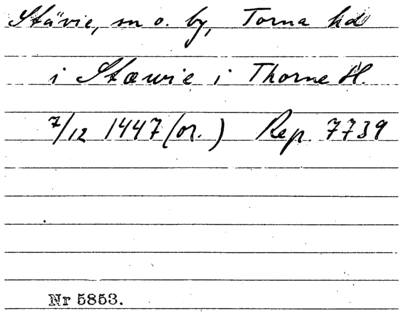 Stävie, sn o. by, Torna hd
i Stæwie i Thorne H.
7/12 1447 (or.) Rep. 7739
Nr 5853.